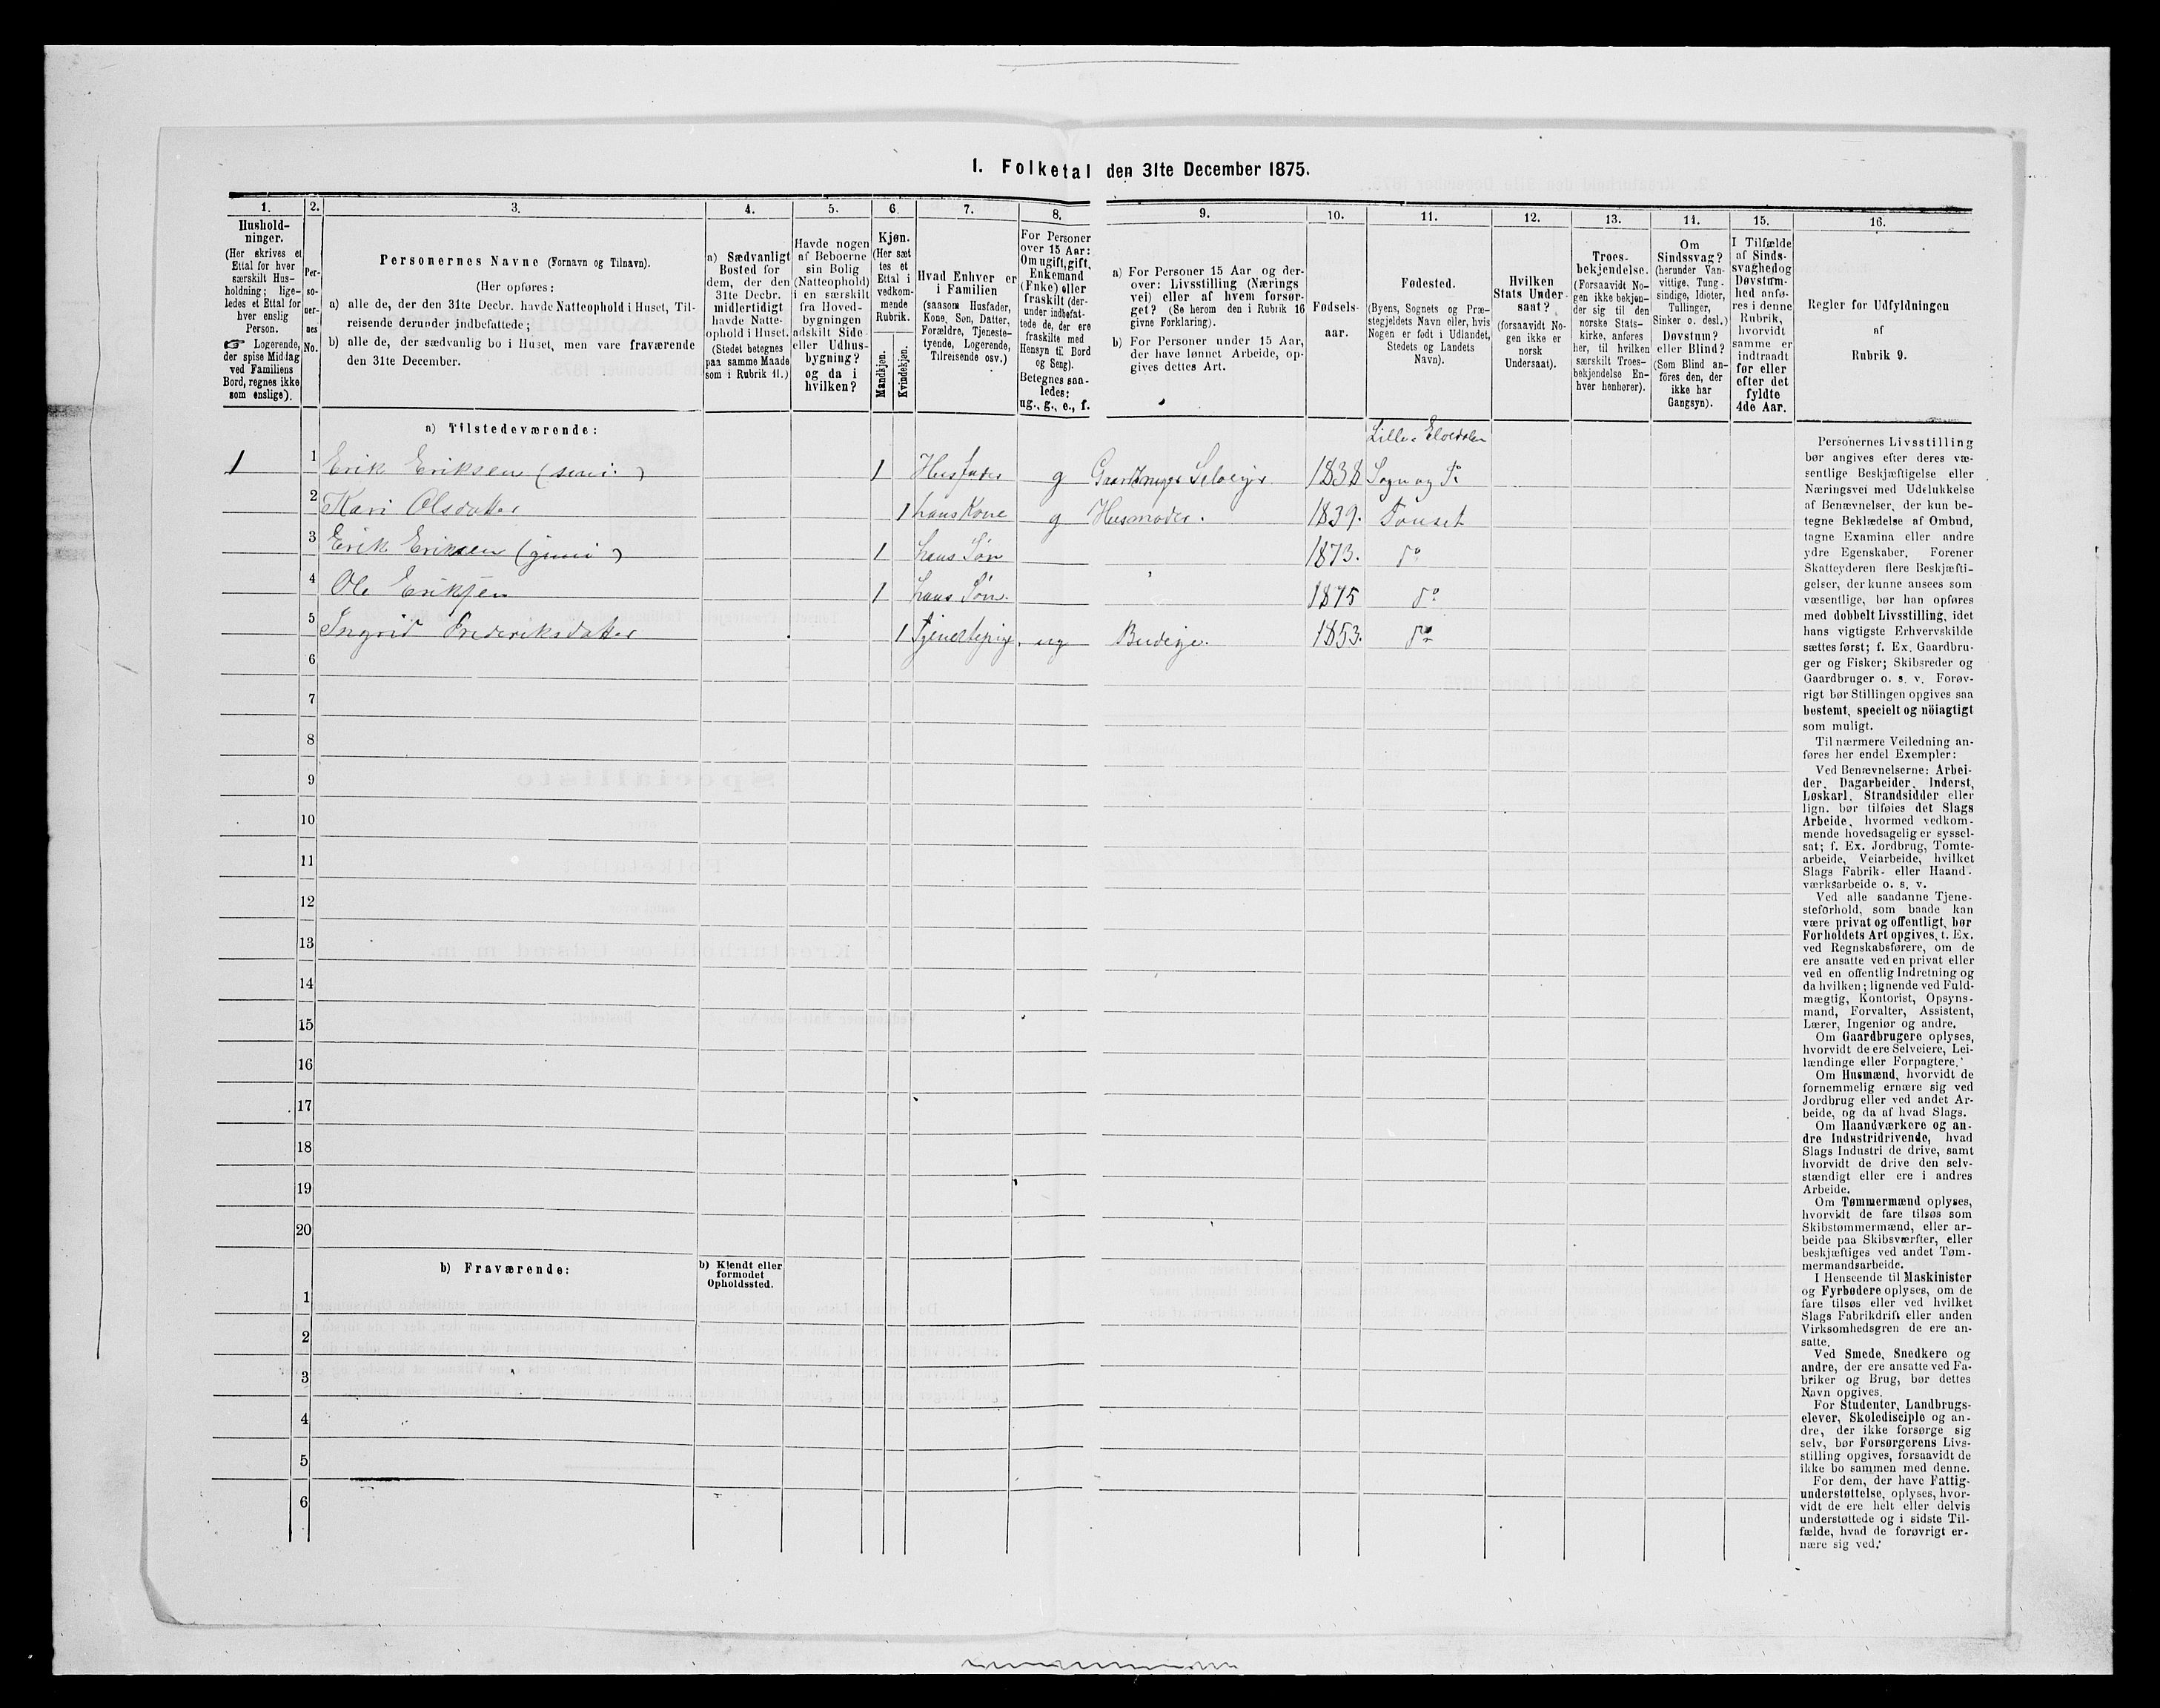 1. Folketal den 31te December 1875.
1.
Hushold-
ninger.
(Her skrives et
Ettal for hver
særskilt Hus-
holdning; lige-
ledes et Ettal for
hver enslig
Person.
☞ Logerende,
der spise Middag
ved Familiens
Bord, regnes ikke
som enslige).
2.
Per-
so-
ner-
nes
No.
3.
Personernes Navne (Fornavn og Tilnavn).
(Her opføres:
a) alle de, der den 31te Decbr. havde Natteophold i Huset, Til-
reisende derunder indbefattede;
b) alle de, der sædvanlig bo i Huset, men vare fraværende
den 31te December.
4.
a) Sædvanligt
Bosted for
dem, der den
31te Decbr.
midlertidigt
havde Natte-
ophold i Huset.
(Stedet betegnes
paa samme Maade
som i Rubrik 11.)
5.
Havde nogen
af Beboerne
sin Bolig
(Natteophold)
i en særskilt
fra Hoved-
bygningen
adskilt Side-
eller Udhus-
bygning?
og da i
hvilken?
6.
Kjøn.
(Her sæt
tes et
Ettal i
vedkom-
mende
Rubrik.
Mandkjøn.
Kvindekjøn.
7.
Hvad Enhver er
i Familien
(saasom Husfader,
Kone, Søn, Datter,
Forældre, Tjeneste-
tyende, Logerende,
Tilreisende osv.)
8.
For Personer
over 15 Aar:
Om ugift, gift,
Enkemand
(Enke) eller
fraskilt (der-
under indbefat-
tede de, der ere
fraskilte med
Hensyn til Bord
og Seng).
Betegnes saa-
ledes:
ug., g., e., f.
9.
a) For Personer 15 Aar og der-
over: Livsstilling (Nærings
vei) eller af hvem forsør-
get? (Se herom den i Rubrik 16
givne Forklaring).
b) For Personer under 15 Aar,
der have lønnet Arbeide, op-
gives dettes Art.
10.
Fødsels-
aar.
11.
Fødested.
(Byens, Sognets og Præ-
stegjeldets Navn eller, hvis
Nogen er født i Udlandet,
Stedets og Landets
Navn).
12.
Hvilken
Stats Under-
saat?
(forsaavidt No-
gen ikke er
norsk
Undersaat).
13.
Troes-
bekjendelse.
(Forsaavidt No-
gen ikke bekjen-
der sig til den
norske Stats-
kirke, anføres
her, til hvilken
særskilt Troes-
bekjendelse En-
hver henhører).
14.
Om
Sindssvag?
(herunder Van-
vittige, Tung-
sindige, Idioter,
Tullinger,
Sinker o. desl.)
Døvstum?
eller Blind?
(Som Blind an-
føres den, der
ikke har
Gangsyn).
15.
I Tilfælde
af Sinds-
svaghed og
Døvstum-
hed anfø-
res i denne
Rubrik,
hvorvidt
samme er
indtraadt
før eller
efter det
fyldte
4de Aar.
16.
Regler for Udfyldningen
af
Rubrik 9.
a) Tilstedeværende:
Lille Elvedalen
1 1 Erik Eriksen (seni:) 1 Husfader g Gaardbruger Selveier 1838 Sogn og Pr
2 Kari Olsdatter 1 hans Kone g Husmoder. 1839. Tønset
3 Erik Eriksen (juni:) 1 hans Søn 1873. do
4 Ole Eriksen 1 hans Søn. 1875 do
5 Ingrid Frederiksdatter 1 Tjenestepige. ug Budeie. 1853. do
6
7
8
9
10
11
12
13
14
15
16
17
18
19
20
b) Fraværende:
b) Kjendt eller
formodet
Opholdssted.
1
2
3
4
5
6
Personernes Livsstilling
bør angives efter deres væ-
sentlige Beskjæftigelse eller
Næringsvei med Udelukkelse
af Benævnelser, der kun be-
tegne Beklædelse af Ombud,
tagne Examina eller andre
ydre Egenskaber. Forener
Skatteyderen flere Beskjæfti-
gelser, der kunne ansees som
væsentlige, bør han opføres
med dobbelt Livsstilling, idet
hans vigtigste Erhvervskilde
sættes først; f. Ex. Gaardbru-
ger og Fisker; Skibsreder og
Gaardbruger o. s. v. Forøv-
rigt bør Stillingen opgives saa
bestemt, specielt og nöiagtigt
som muligt.
Til nærmere Veiledning an-
føres her endel Exempler:
Ved Benævnelserne: Arbei-
der, Dagarbeider, Inderst,
Løskarl, Strandsidder eller
lign. bør tilføies det Slags
Arbeide, hvormed vedkom-
mende hovedsagelig er syssel-
sat; f. Ex. Jordbrug, Tomte-
arbeide, Veiarbeide, hvilket
Slags Fabrik- eller Haand-
værksarbeide o. s. v.
Ved alle saadanne Tjene-
steforhold, som baade kan
være privat og offentligt, bør
Forholdets Art opgives, t. Ex.
ved Regnskabsførere, om de
ere ansatte ved en privat eller
ved en offentlig Indretning og
da hvilken; lignende ved Fuld-
mægtig, Kontorist, Opsyns-
mand, Forvalter, Assistent,
Lærer, Ingeniør og andre.
Om Gaardbrugere oplyses,
hvorvidt de ere Selveiere, Lei-
lændinge eller Forpagtere.
Om Husmænd, hvorvidt de
fornemmelig ernære sig ved
Jordbrug eller ved andet Ar-
beide, og da af hvad Slags.
Om Haandværkere og an-
dre Industridrivende, hvad
Slags Industri de drive, samt
hvorvidt de drive den selv-
stændigt eller ere i andres
Arbeide.
Om Tømmermænd oplyses,
hvorvidt de fare tilsøs som
Skibstømmermænd, eller ar-
beide paa Skibsværfter, eller
beskjæftiges ved andet Tøm-
mermandsarbeide.
I Henseende til Maskinister
og Fyrbødere oplyses, om de
fare tilsøs eller ved hvilket
Slags Fabrikdrift eller anden
Virksomhedsgren de ere an-
satte.
Ved Smede, Snedkere og
andre, der ere ansatte ved Fa-
briker og Brug, bør dettes
Navn opgives.
For Studenter, Landbrugs-
elever, Skoledisciple og an-
dre, der ikke forsørge sig
selv, bør Forsørgerens Livs-
stilling opgives, forsaavidt de
ikke bo sammen med denne.
For dem, der have Fattig-
understøttelse, oplyses, hvor-
vidt de ere helt eller delvis
understøttede og i sidste Til-
fælde, hvad de forøvrigt er-
nære sig ved.